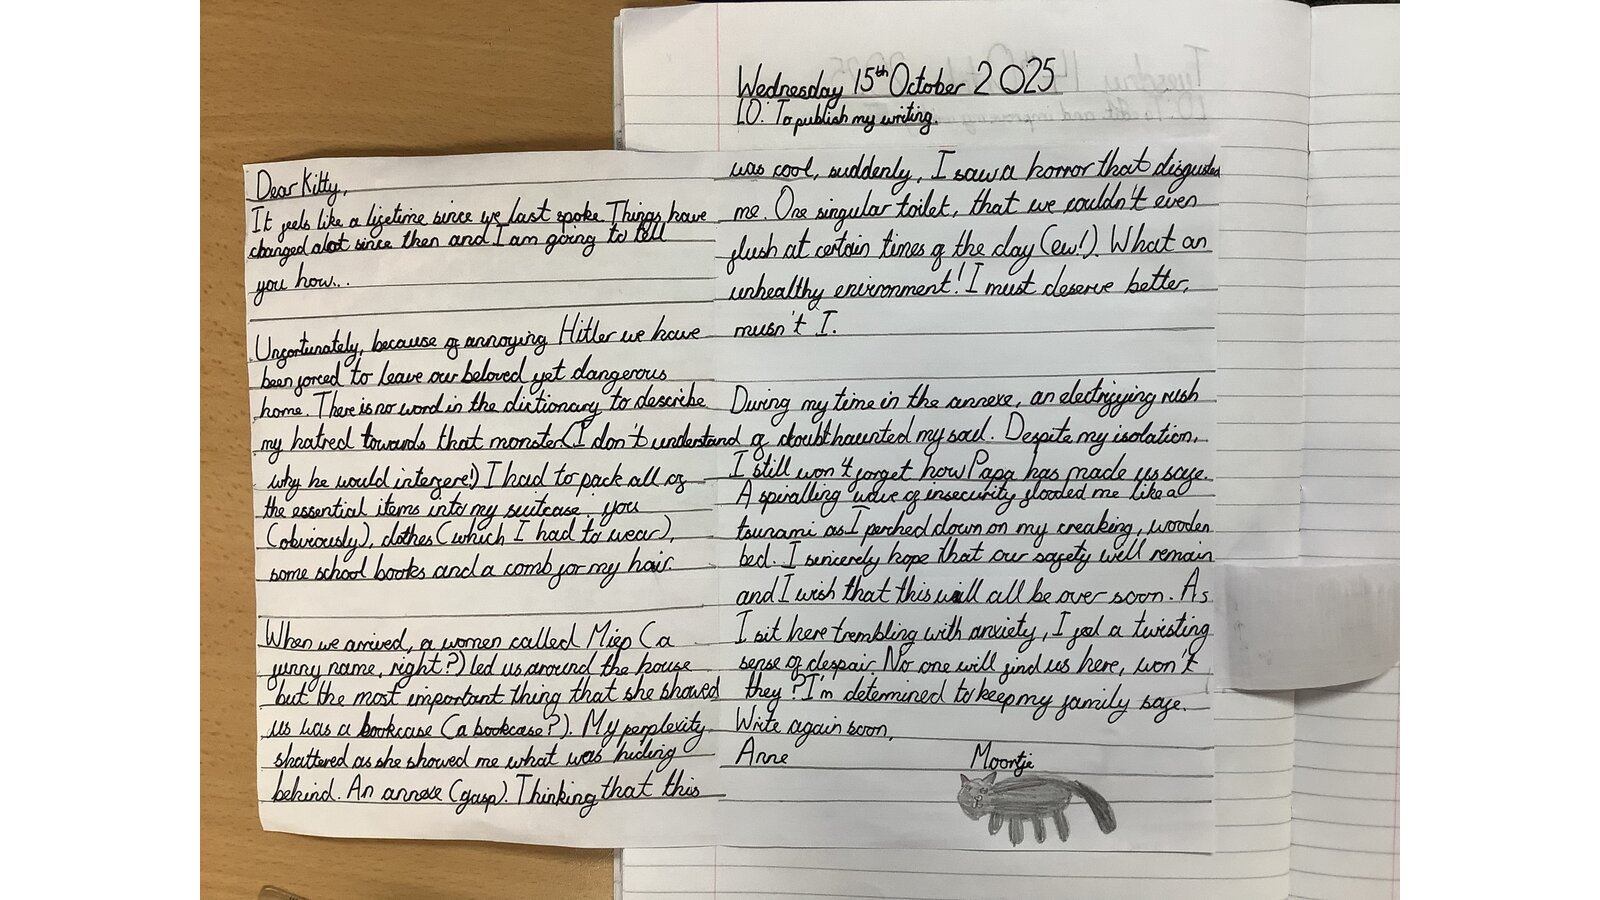 Wednesday 15th October 2025
LO: To publish my writing.
Dear Kitty,
It feels like a lifetime since we last spoke. Things have
changed alot since then and I am going to tell
you how...
Unfortunately, because of annoying Hitler we have
been forced to leave our beloved yet dangerous
home. There is no word in the dictionary to describe
my hatred towards that monster. (I don't understand
why he would interfere!) I had to pack all of
the essential items into my suitcase: you
(obviously), clothes (which I had to wear),
some school books and a comb for my hair.
When we arrived, a women called Miep (a
funny name, right?) led us around the house
but the most important thing that she showed
us was a bookcase (a bookcase?). My perplexity
shattered as she showed me what was hiding
behind. An annexe (gasp). Thinking that this
was cool, suddenly, I saw a horror that disgusted
me. One singular toilet, that we couldn't even
flush at certain times of the day (ew!). What an
unhealthy environment! I must deserve better,
musn't I.
During my time in the annexe, an electrifying rush
of doubt haunted my soul. Despite my isolation,
I still won't forget how Papa has made us safe.
A spiralling wave of insecurity flooded me like a
tsunami as I perched down on my creaking, wooden
bed. I sincerely hope that our safety will remain
and I wish that this will all be over soon. As
I sit here trembling with anxiety, I feel a twisting
sense of despair. No one will find us here, won't
they? I'm determined to keep my family safe.
Write again soon,
Anne
Moortje